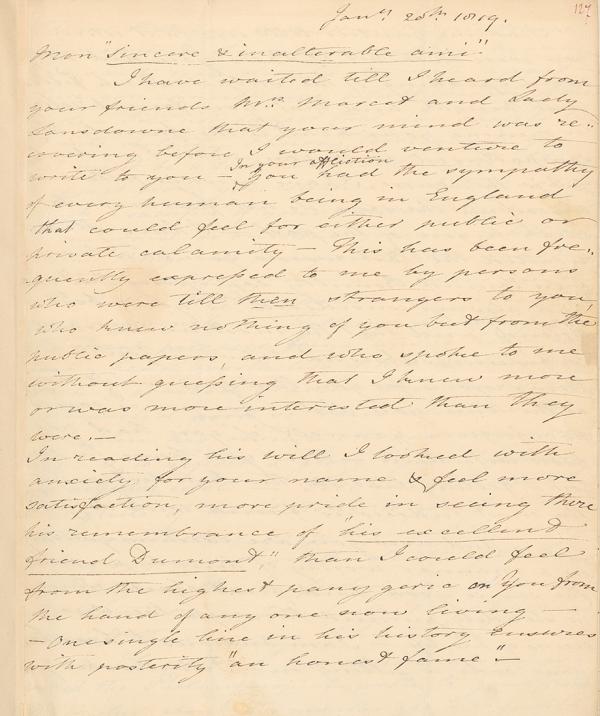 127
Jany. 20th. 1819.
Mon "Sincere & inalterable ami"
I have waited till I heard from
your friends Mrs. Marcet and Lady
Lansdowne that your mind was re-
covering before I would venture to
In your affliction
write to you – you had the sympathy
of every human being in England
that could feel for either public or
private calamity – This has been fre-
quently expressed to me by persons
who were till then strangers to you,
who knew nothing of you but from the
public papers, and who spoke to me
without guessing that I knew more
or was more interested than they
were. –
In reading his will I looked with
anxiety for your name & feel more
satisfaction, more pride in seeing there
his remembrance of "his excellent
friend Dumont," than I could feel
from the highest panygeric on you from
the hand of any one now living –
– One single line in his history ensures
with posterity "an honest fame" –